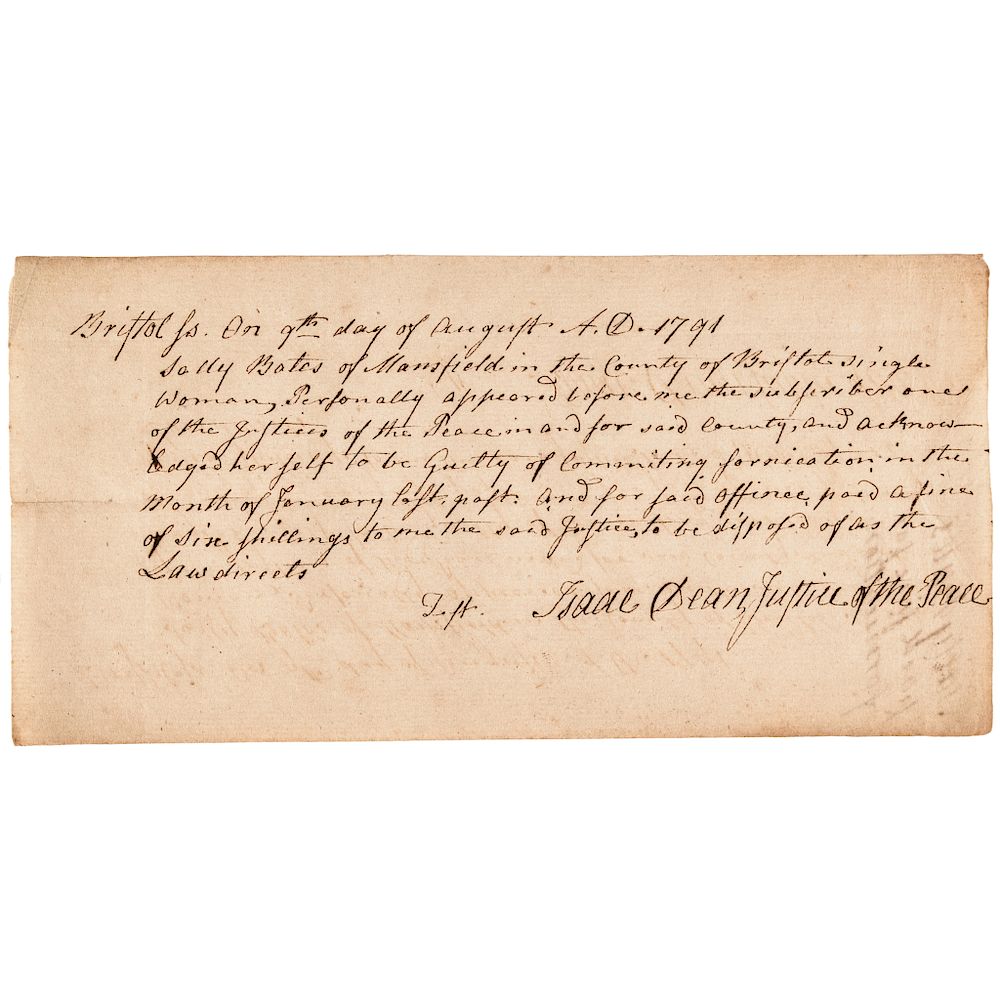 Bristol ss. On 9th day of August A.D. 1791
Sally Bates of Mansfield in the County of Bristol single
woman, Personally appeared before me the subscriber one
of the Justices of the Peace in and for said County, and acknow-
ledged her self to be Guilty of Commiting fornication in the
Month of January last, past: and for said offince, paid a fine
of six shillings to me the said Justice, to be disposed of as the
Law directs
Test. Isaac Dean, Justice of the Peace